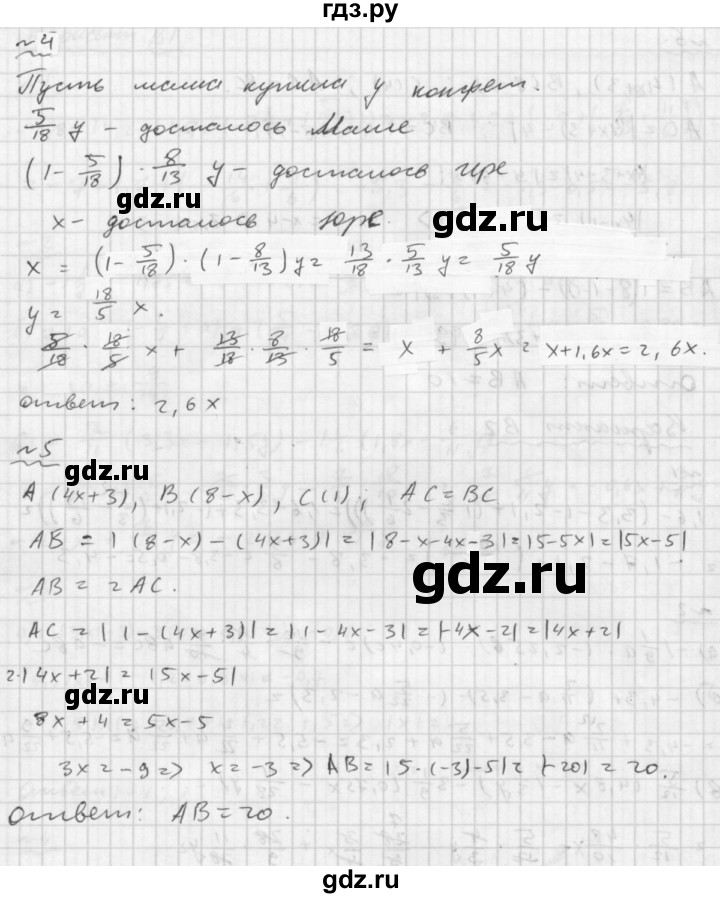 гдз.ру
№4
Пусть мама купила y конфет.
5/18 y – досталось Маше
(1 - 5/18) · 8/13 y – досталось Ире
gdz.ru
gdz.ru
x – досталось Юре.
x = (1 - 5/18) · (1 - 8/13) y = 13/18 · 5/13 y = 5/18 y
y = 18/5 x.
5/18 · 18/5 x + 13/18 · 8/13 · 18/5 = x + 8/5 x = x + 1,6x = 2,6x.
ответ: 2,6x
№5
gdz.ru
A (4x+3), B (8-x), C (1), AC = BC
AB = |(8-x) - (4x+3)| = |8-x-4x-3| = |5-5x| = |5x-5|
gdz.ru
AB = 2AC.
AC = |1 - (4x+3)| = |1-4x-3| = |-4x-2| = |4x+2|
2·|4x+2| = |5x-5|
gdz.ru
8x + 4 = 5x - 5
3x = -9 => x = -3 => AB = |5·(-3)-5| = |-20| = 20.
ответ: AB = 20.
gdz.ru